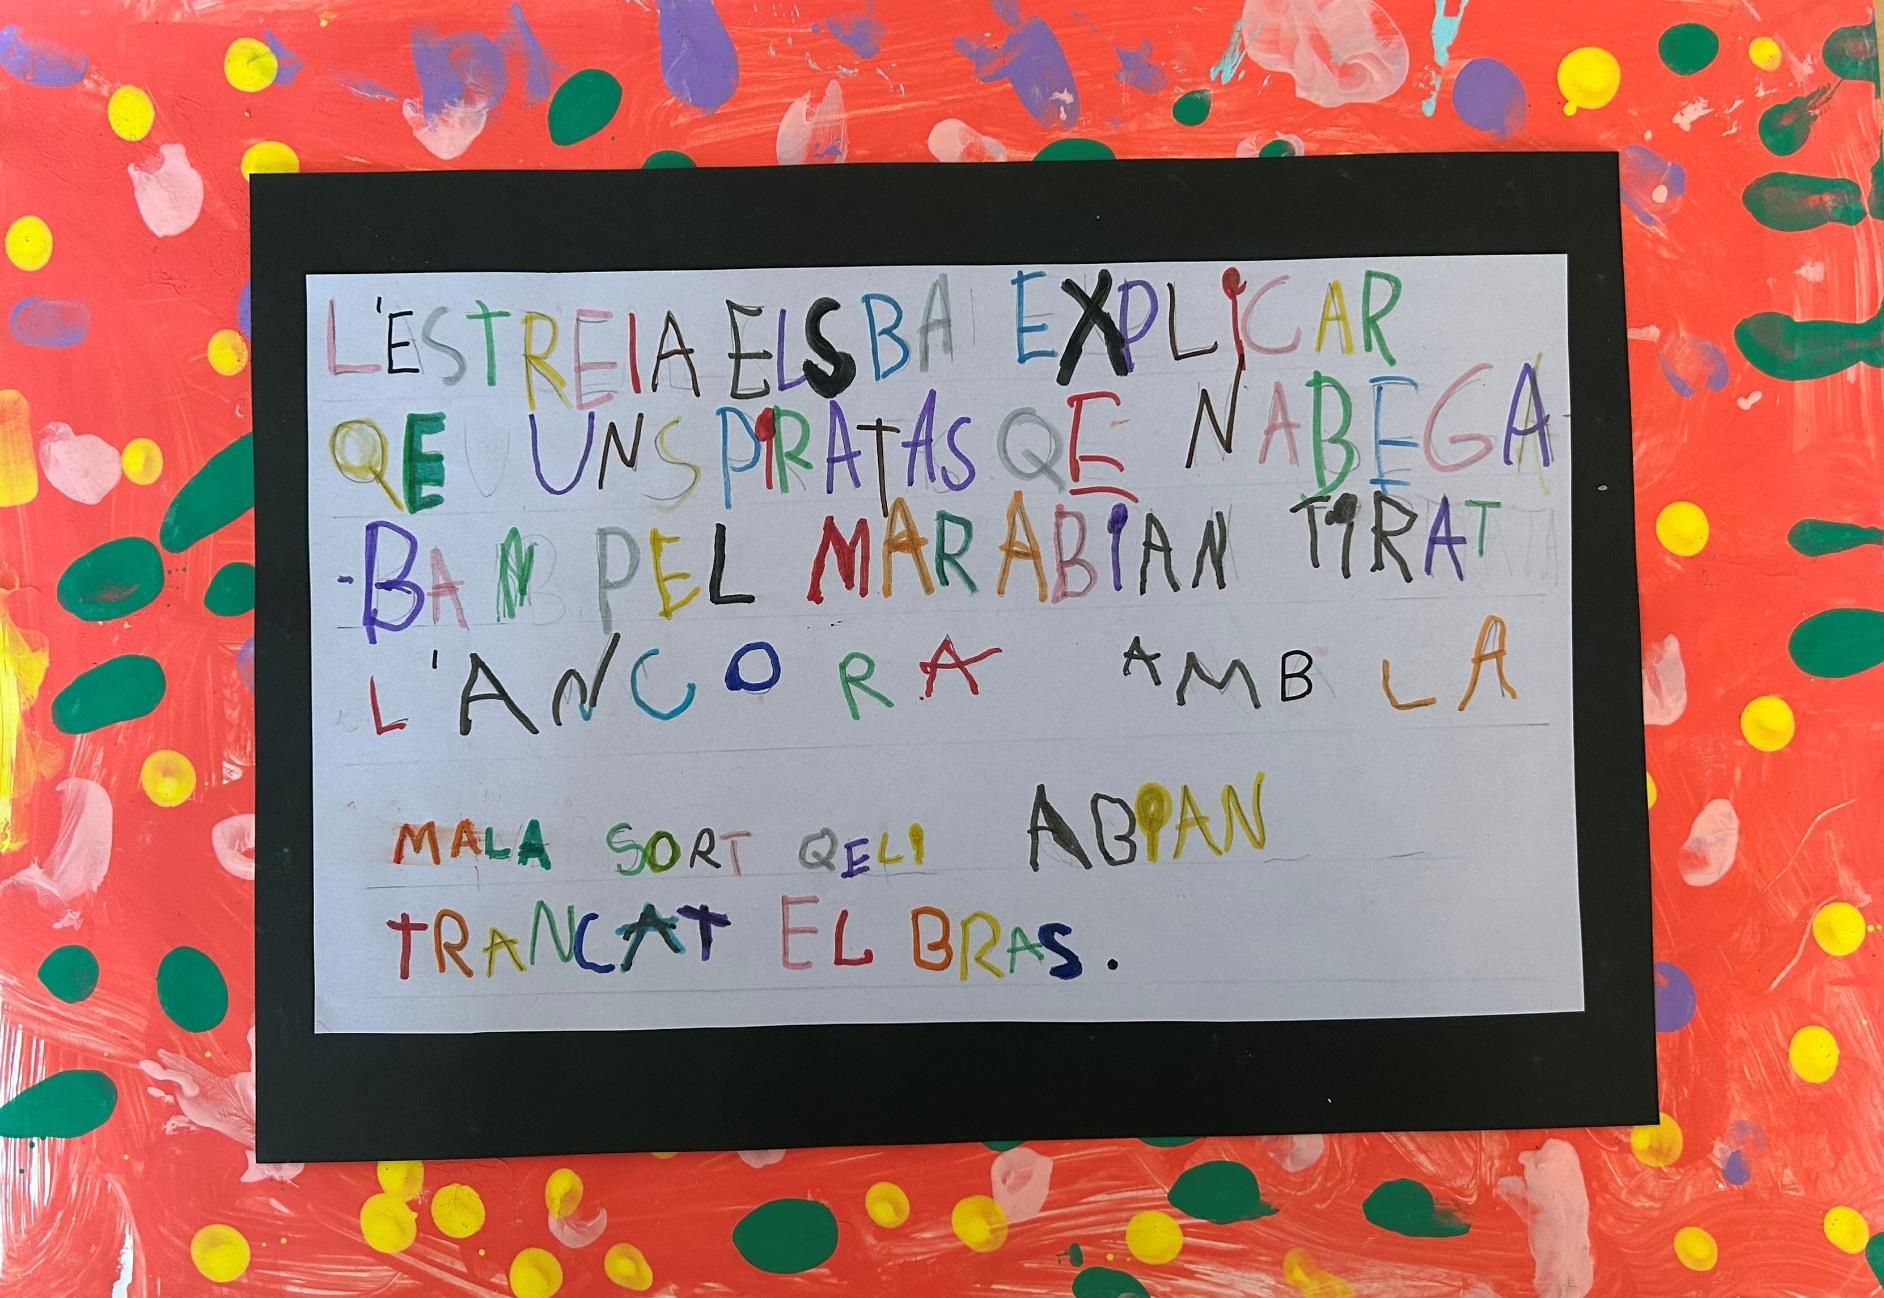 L'ESTREIA ELS BA EXPLICAR
QE UNS PIRATAS QE NABEGA
-BAN PEL MAR ABIAN TIRAT
L'ANCORA AMB LA
MALA SORT QELI ABIAN
TRANCAT EL BRAS.